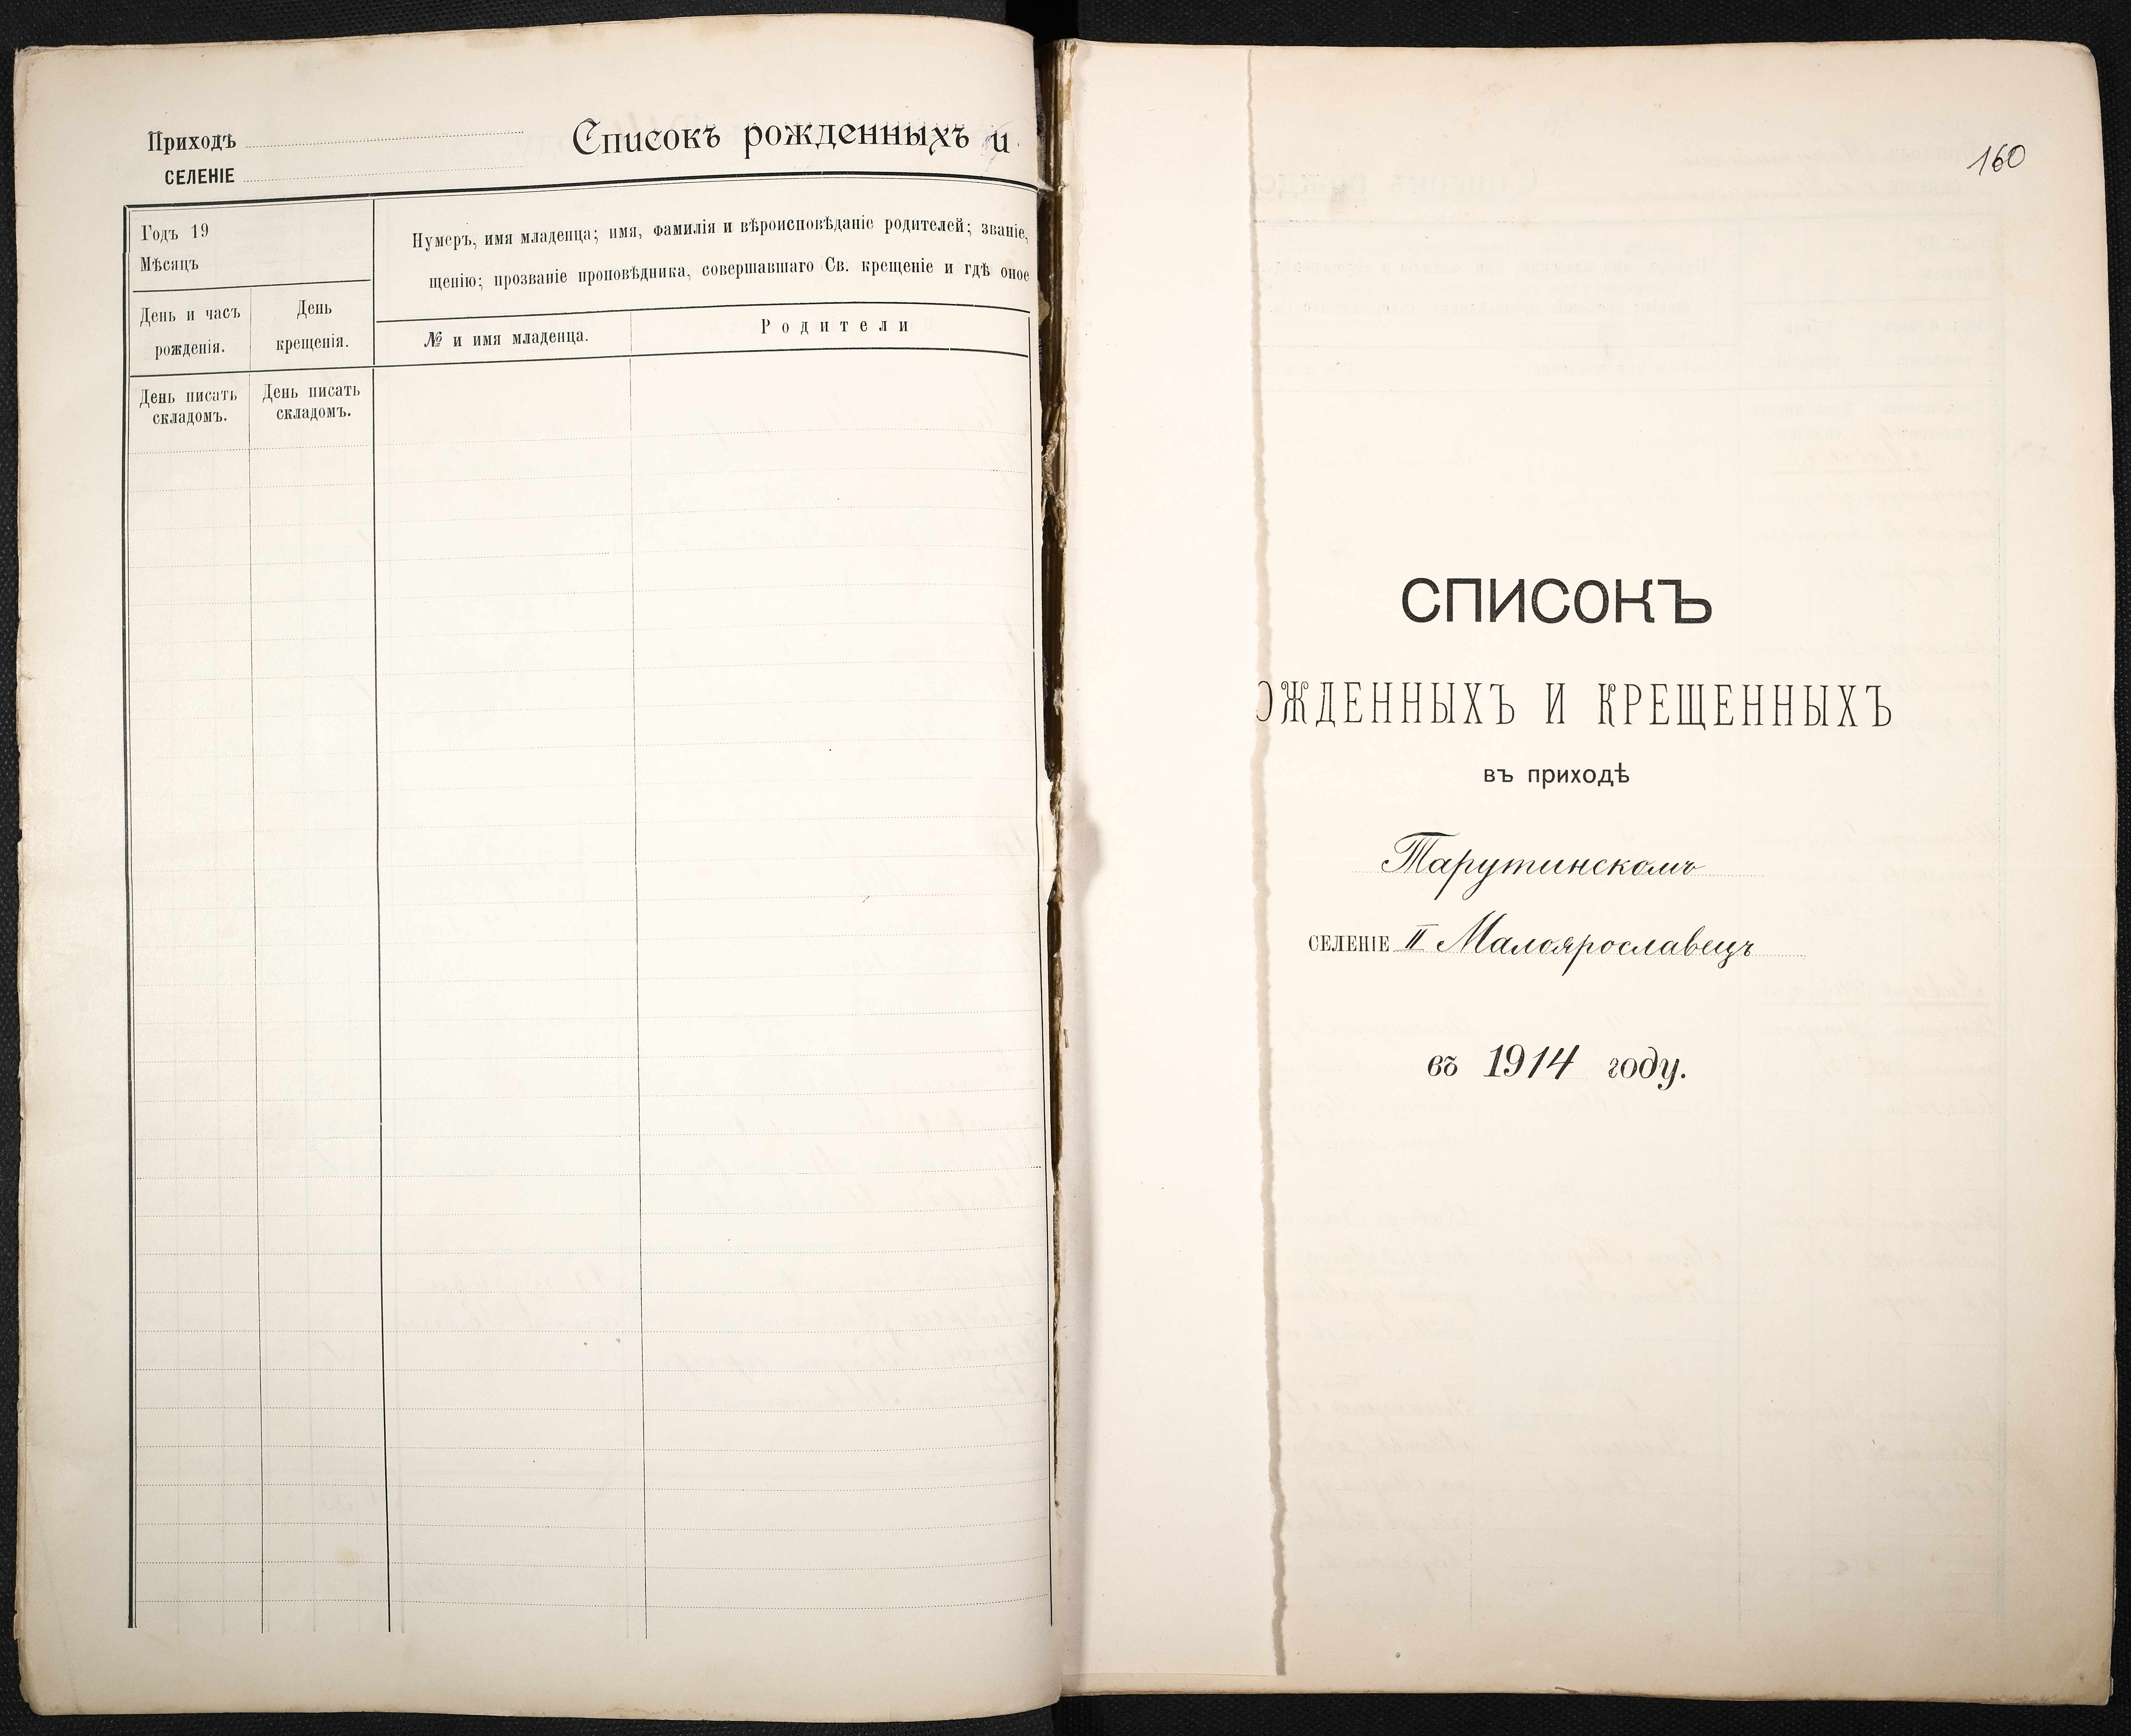 Приходъ
СЕЛЕНІЕ
Списокъ рожденныхъ и
Годъ 19
Мѣсяцъ
Нумеръ, имя младенца; имя, фамилія и вѣроисповѣданіе родителей; званіе,
щенію; прозваніе проповѣдника, совершавшаго Св. крещеніе и гдѣ оное
День и часъ
рожденія.
День
крещенія.
№ и имя младенца.
Родители
День писать
складомъ.
День писать
складомъ.
160
СПИСОКЪ
ОЖДЕННЫХЪ И КРЕЩЕННЫХЪ
въ приходѣ
Тарутинскомъ
СЕЛЕНІЕ II Малоярославецъ
въ 1914 году.